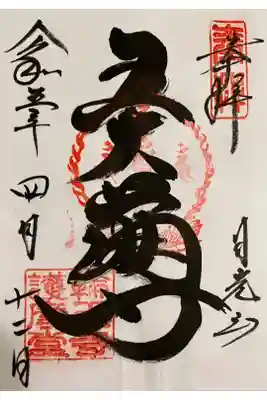 奉拝
日光山
五大尊
令和年四月十二日
輪王寺
護摩堂